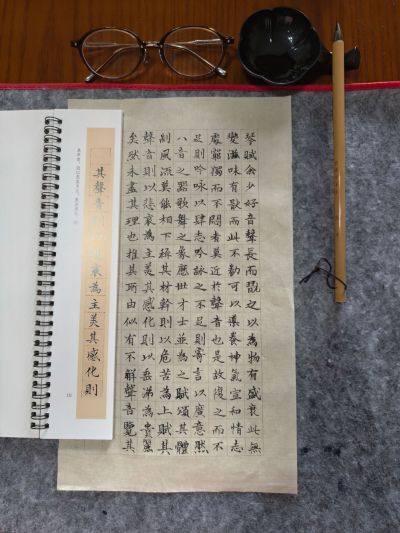 琴賦余少好音聲長而翫之以為物有盛衰此無
變滋味有猒而此不勌可以導養神氣宣和情志
處窮獨而不悶者莫近於聲音也是故復之而不
足則吟咏以肆志吟咏之不足則寄言以廣意然
八音之器歌舞之象歷世才士並為之賦頌其體
制風流莫能相下稱其材幹則以危苦為上賦其
聲音則以悲哀為主美其感化則以垂涕為貴麗
矣然未盡其理也推其所由似有不解聲音覽其
其聲音則哀為主美其感化則